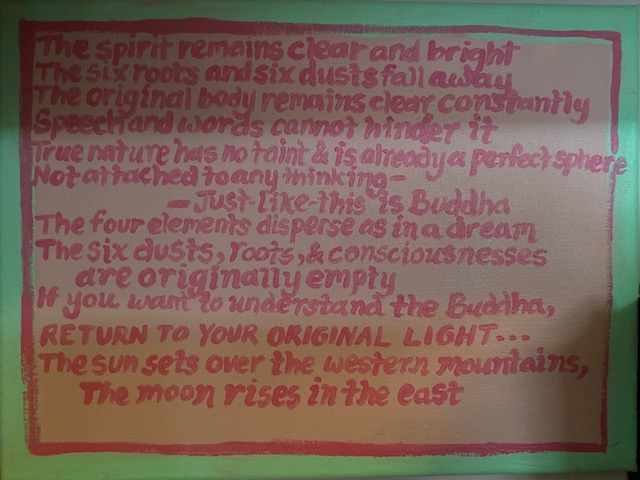 The spirit remains clear and bright
The six roots and six dusts fall away
The original body remains clear constantly
Speech and words cannot hinder it
True nature has no taint & is already a perfect sphere
Not attached to any thinking-
- Just-like-this is Buddha
The four elements disperse as in a dream
The six dusts, roots, & consciousnesses
are originally empty
If you want to understand the Buddha,
RETURN TO YOUR ORIGINAL LIGHT...
The sun sets over the western mountains,
The moon rises in the east